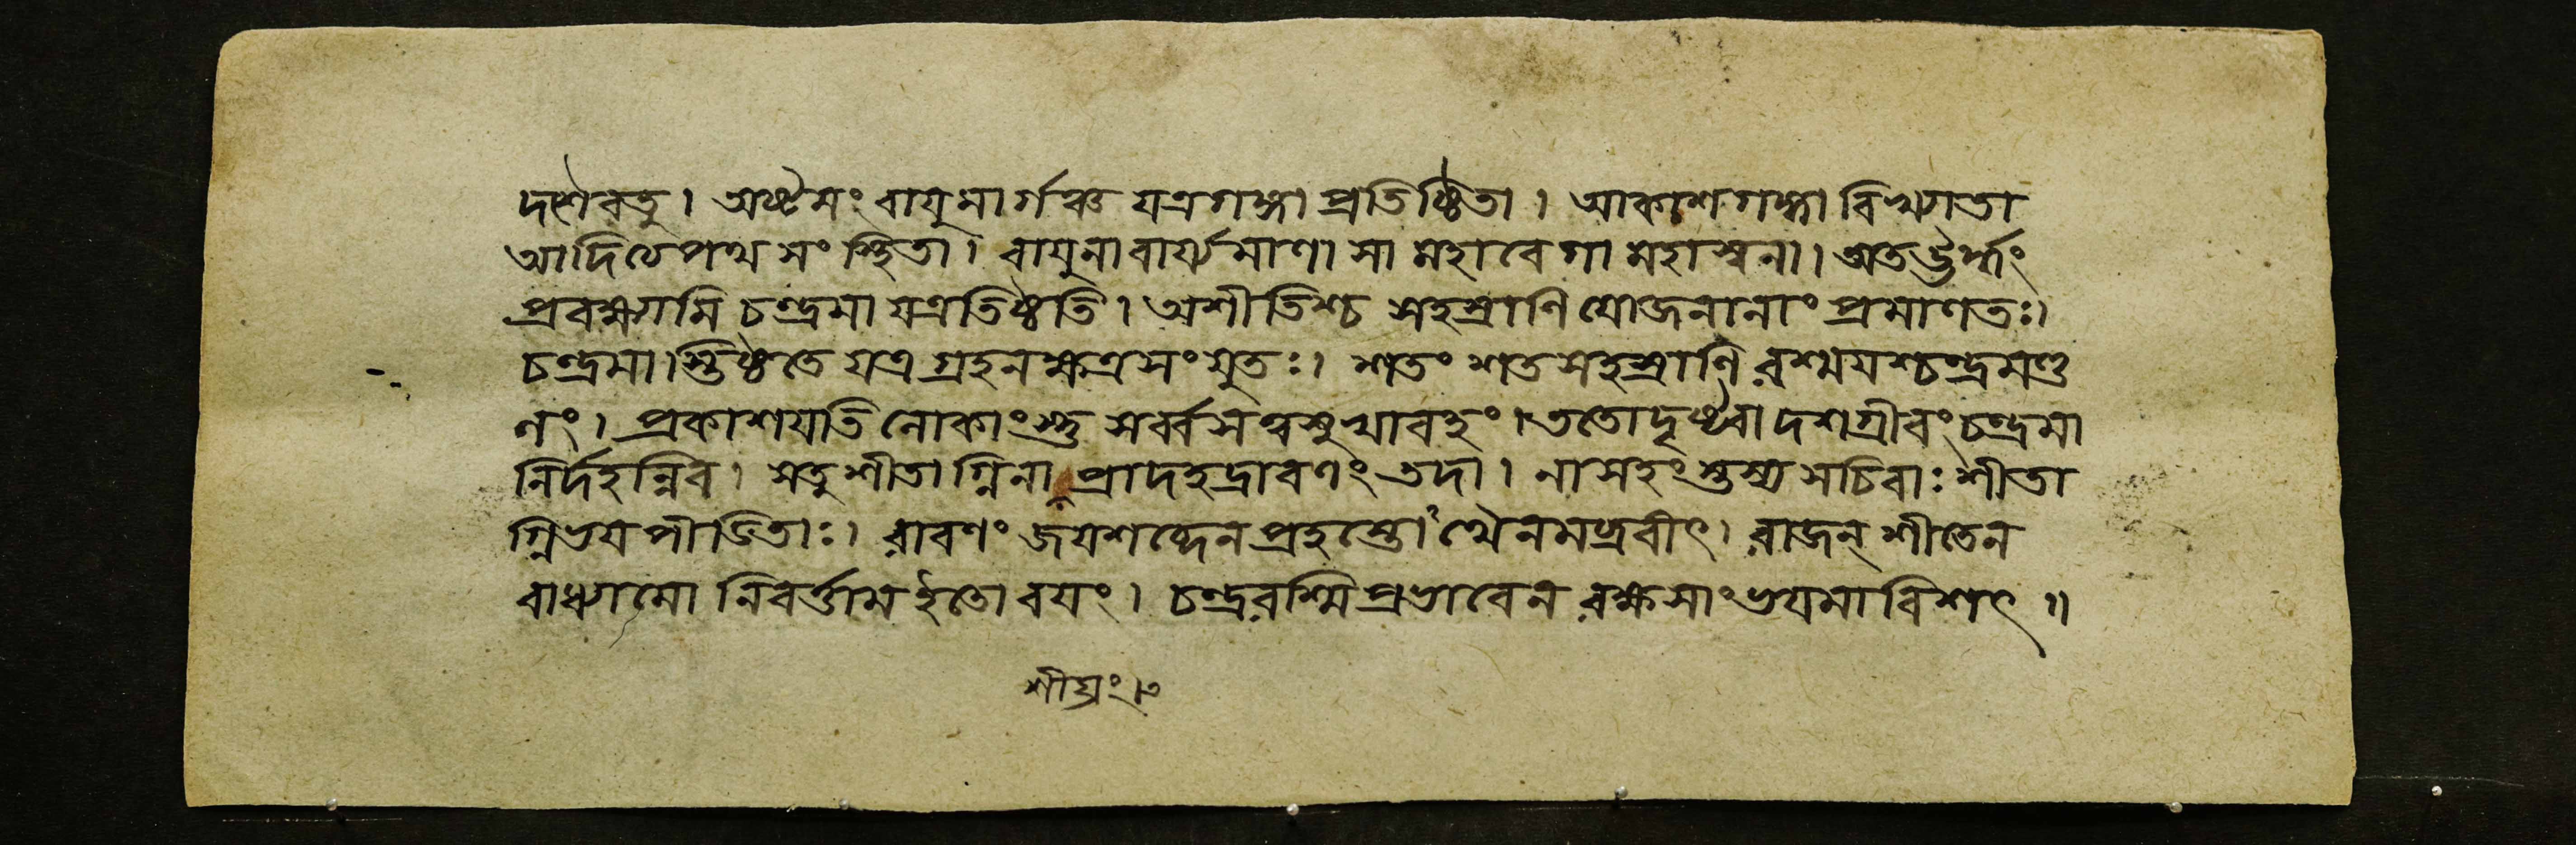 দশৈবতু। অষ্টমং বায়ুমার্গঞ্চ যত্রগঙ্গা প্রতিষ্ঠিতা। আকাশগঙ্গা বিখ্যাতা
আদিত্যপথ সংস্থিতা। বায়ুনা ধার্য্যমাণা সা মহাবেগা মহাস্বনা। অতঊর্দ্ধং
প্রবক্ষ্যামি চন্দ্রমা যত্রতিষ্ঠতি। অশীতিশ্চ সহস্রাণি যোজনানাং প্রমাণতঃ।
চন্দ্রমাস্তিষ্ঠতে যত্র গ্রহনক্ষত্রসংযুতঃ। শতং শতসহস্রাণি রশ্ময়শ্চন্দ্রমণ্ড
লং। প্রকাশয়তি লোকাংস্তু সর্ব্বসত্ত্বসুখাবহং। ততোদৃষ্ট্বাদশগ্রীবং চন্দ্রমা
নির্দহন্নিব। সতু শীতাগ্নিনা প্রাদহদ্রাবণং তদা। নাসহংস্তস্য সচিবাঃ শীতা
গ্নিভয়পীডিতাঃ। রাবণং জয়শব্দেন প্রহস্তোঽথৈনমব্রবীৎ। রাজন্ শীতেন
বাধ্যামো নিবর্ত্তাম ইতো বয়ং। চন্দ্ররশ্মিপ্রভাবেন রক্ষসাং ভয়মাবিশৎ॥
শীঘ্রং।